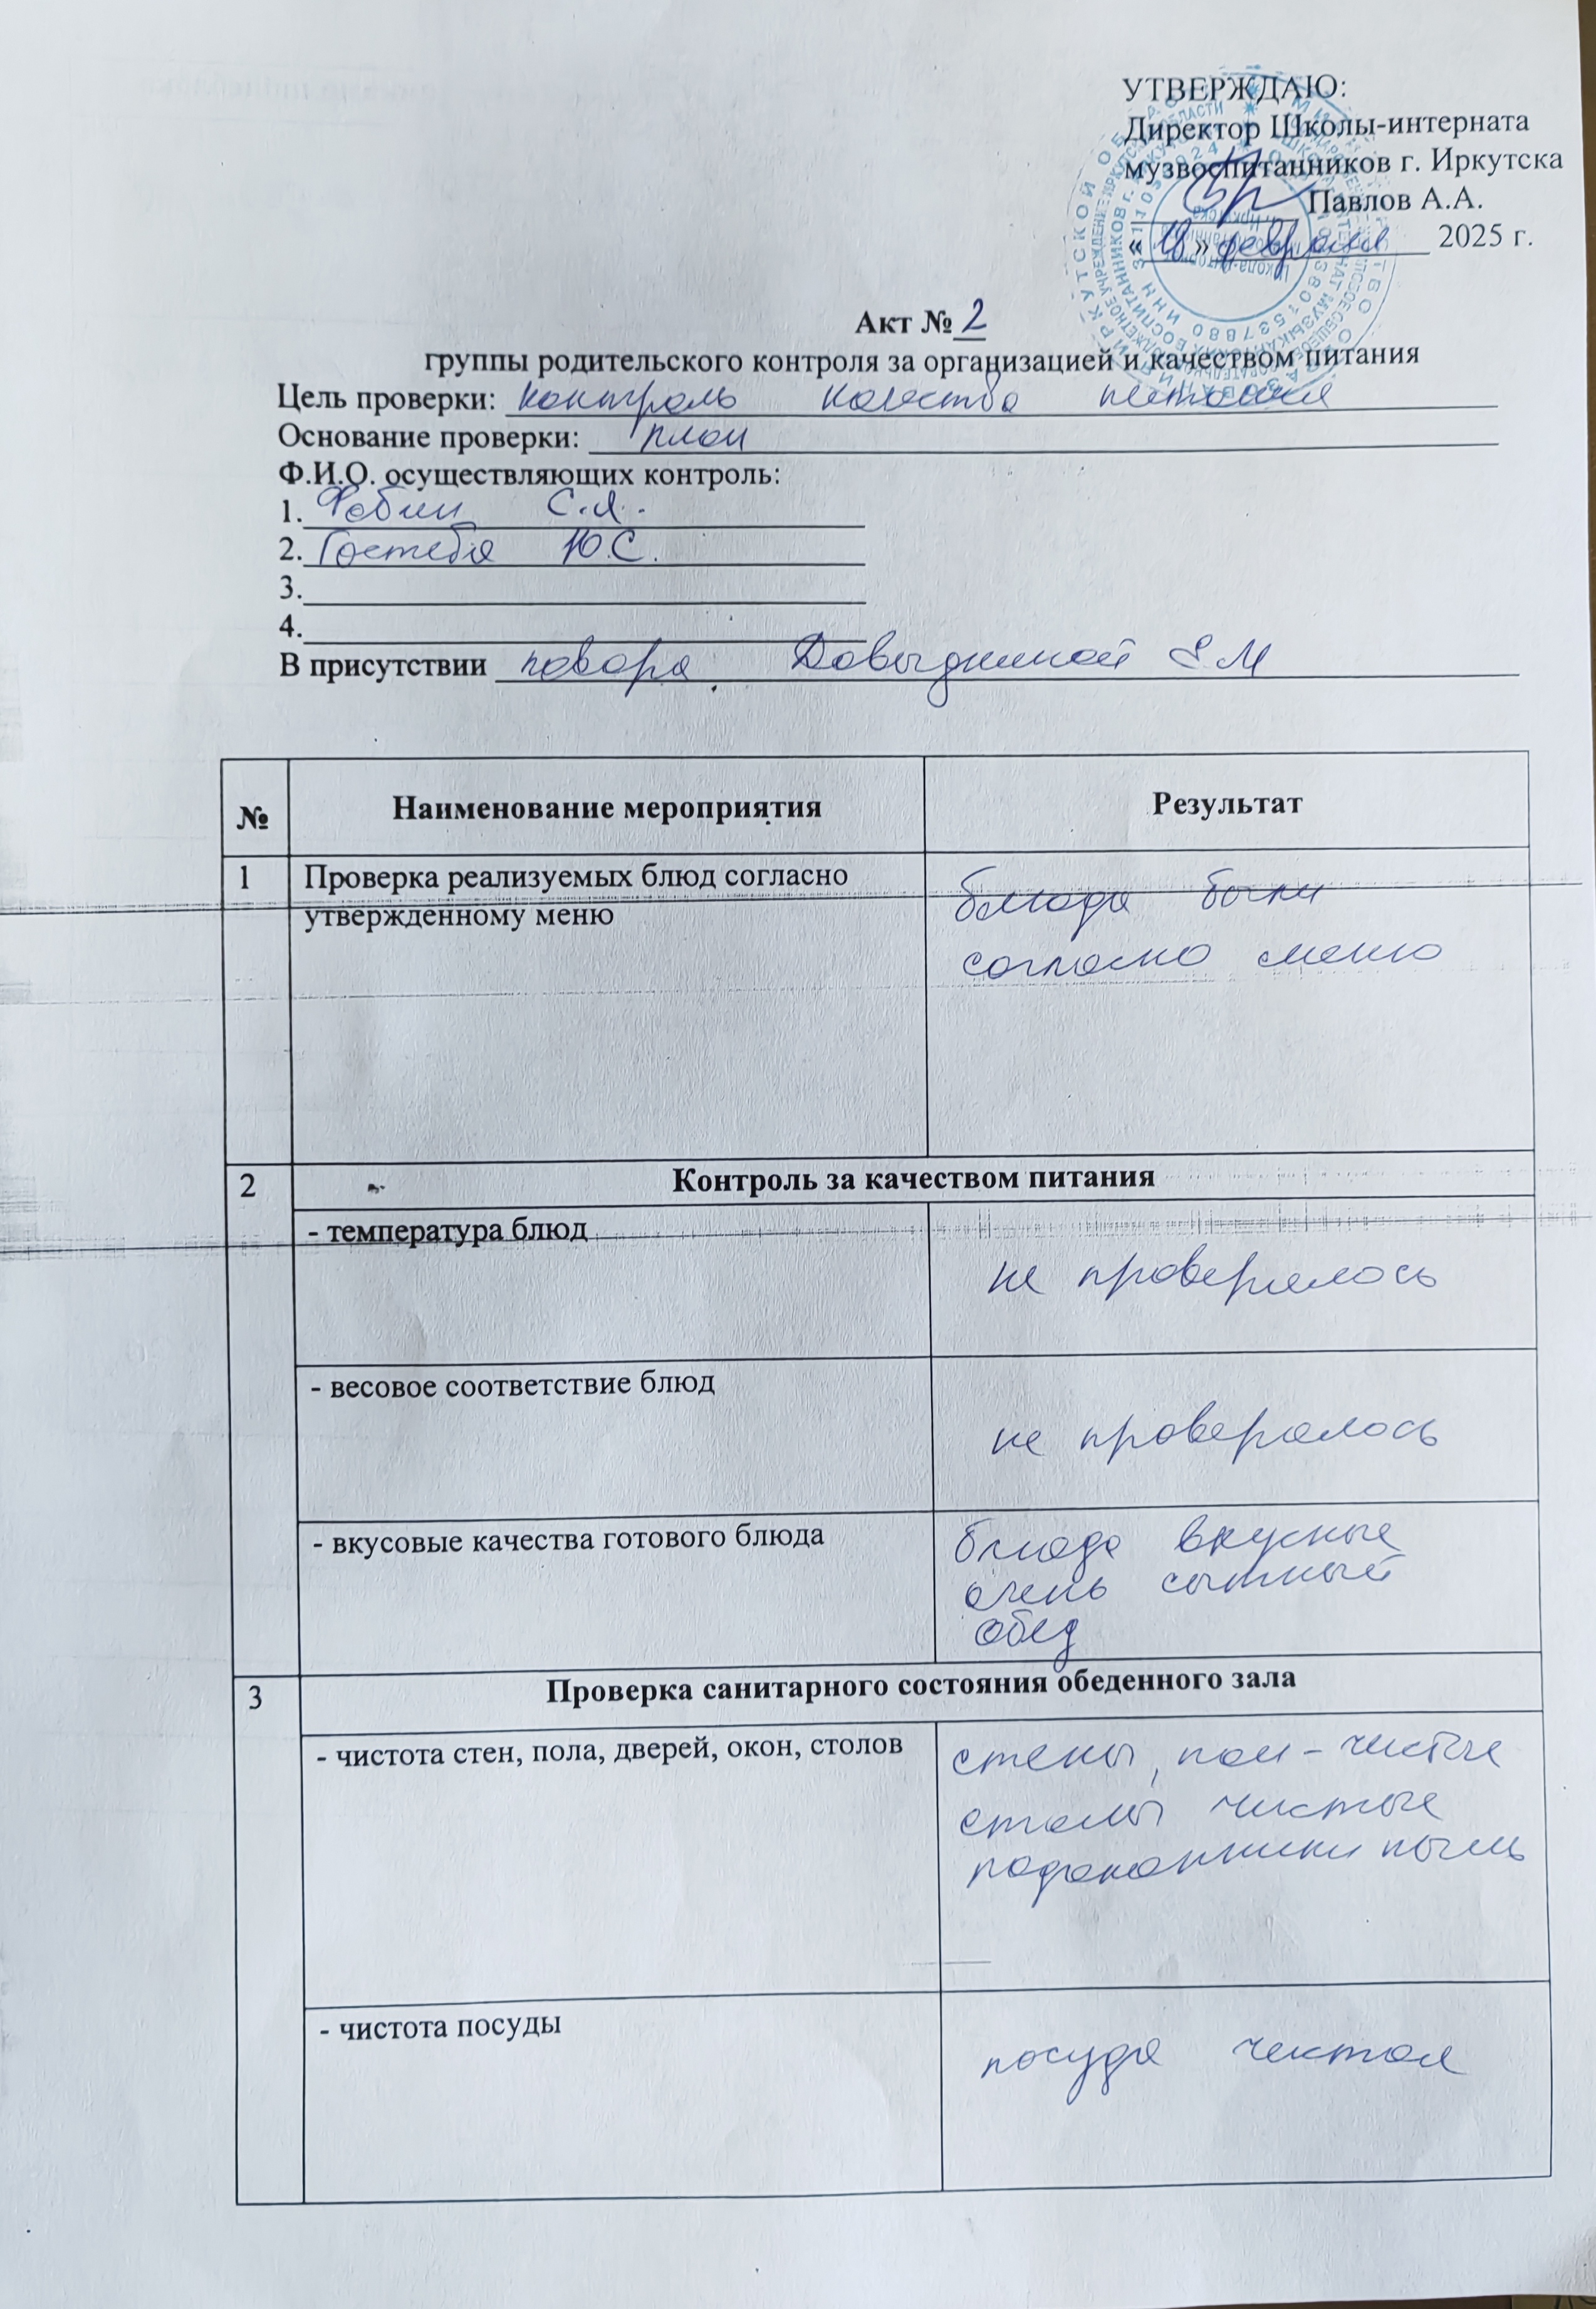 УТВЕРЖДАЮ:
Директор Школы-интерната
музвоспитанников г. Иркутска
Павлов А.А.
«18» февраля 2025 г.
Акт № 2
группы родительского контроля за организацией и качеством питания
Цель проверки: контроль качества питания
Основание проверки: план
Ф.И.О. осуществляющих контроль:
1. С.Я.
2. Ю.С.
3.
4.
В присутствии повара Давыдкиной Е.М
№ Наименование мероприятия Результат
1 Проверка реализуемых блюд согласно блюда были
утвержденному меню согласно меню
2 Контроль за качеством питания
- температура блюд не проверялось
- весовое соответствие блюд не проверялось
- вкусовые качества готового блюда блюда вкусные
очень сытный
обед
3 Проверка санитарного состояния обеденного зала
- чистота стен, пола, дверей, окон, столов стены, пол - чистые
столы чистые
подоконники пыль
- чистота посуды посуда чистая